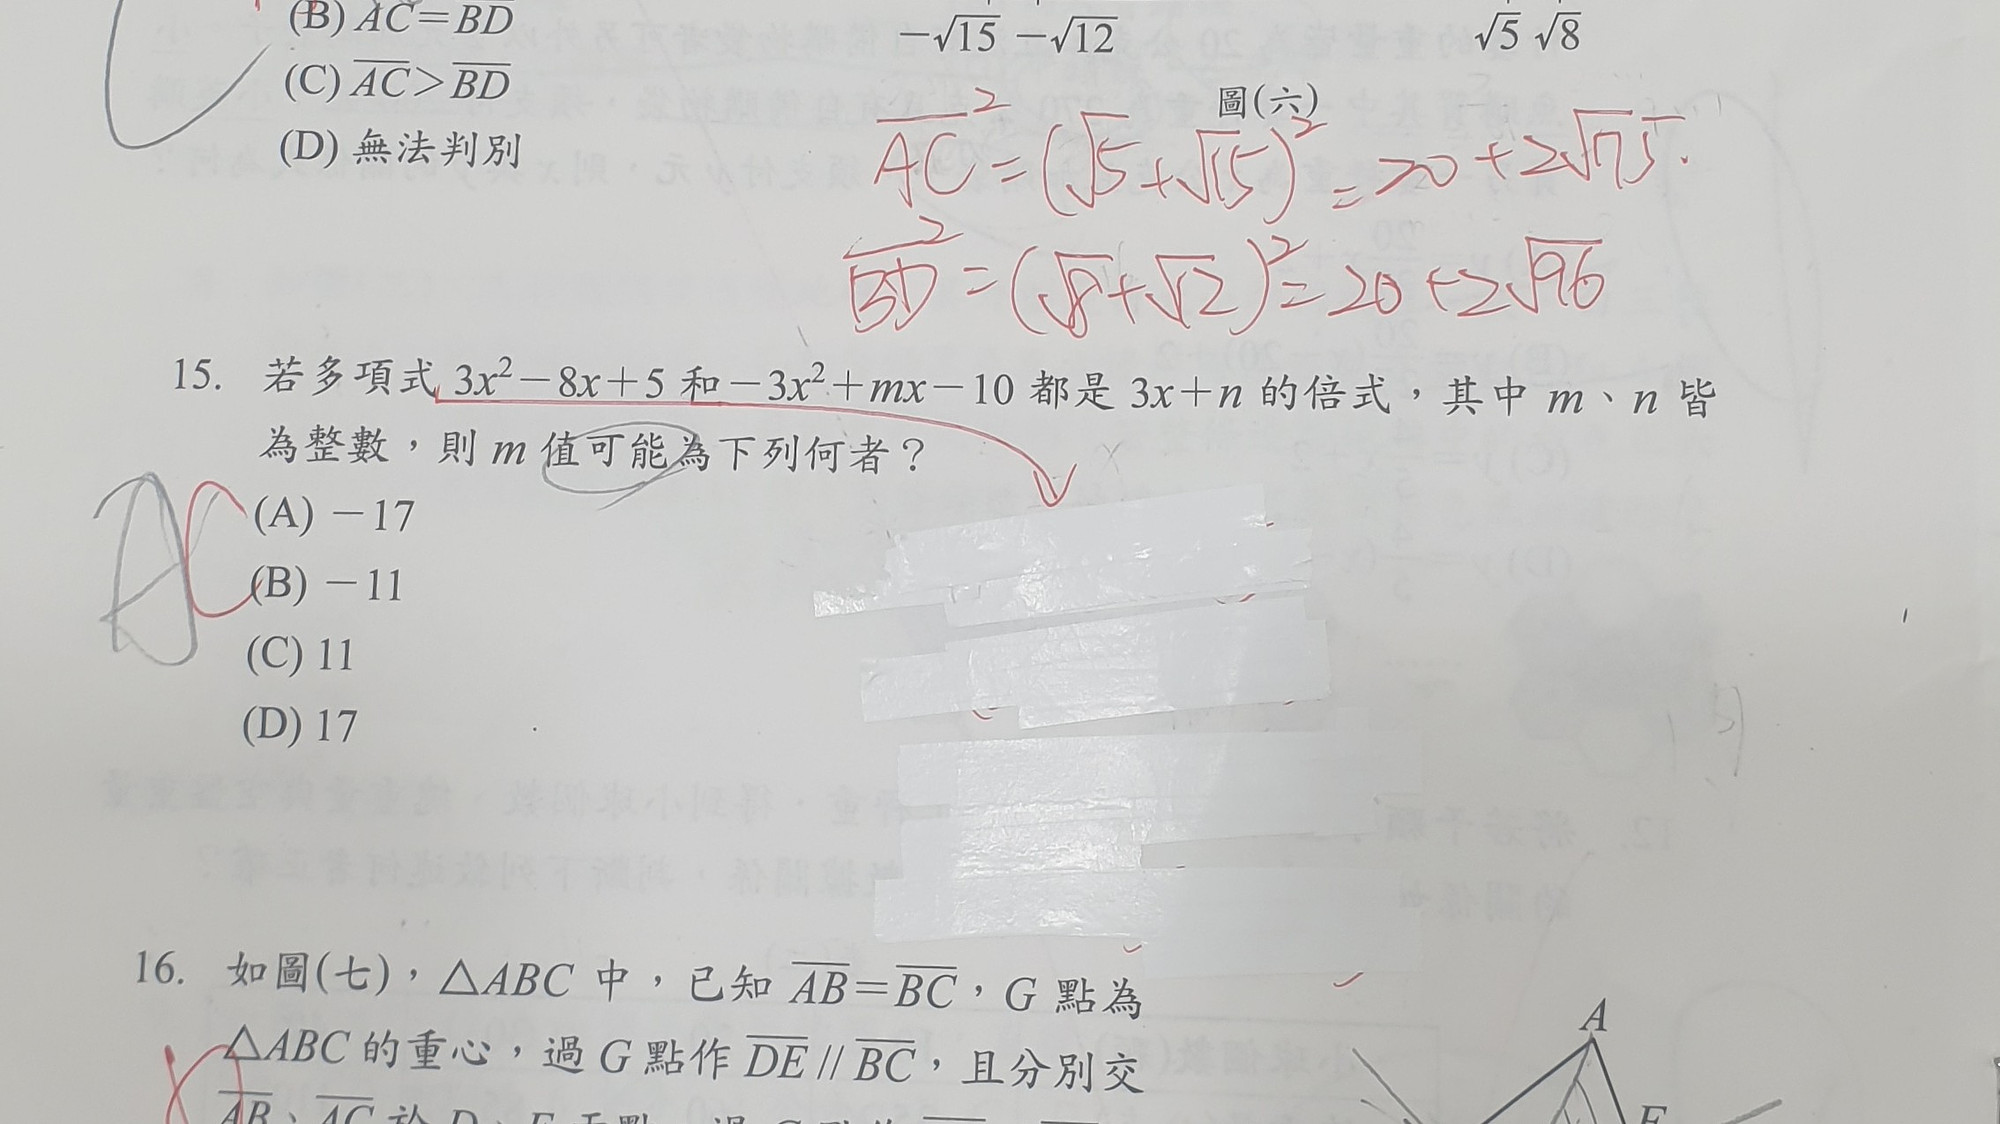 (B) AC=BD
(C) AC>BD
(D) 無法判別
-√15 -√12
√5 √8
圖(六)
AC²=(√5+√15)²=20+2√75.
BD²=(√8+√12)²=20+2√96
15. 若多項式 3x²-8x+5 和 -3x²+mx-10 都是 3x+n 的倍式,其中 m、n 皆
為整數,則 m 值可能為下列何者?
(A) -17
(B) -11
(C) 11
(D) 17
A C
16. 如圖(七),△ABC 中,已知 AB=BC,G 點為
△ABC 的重心,過 G 點作 DE // BC,且分別交
AB、AC 於 D、E
A
E